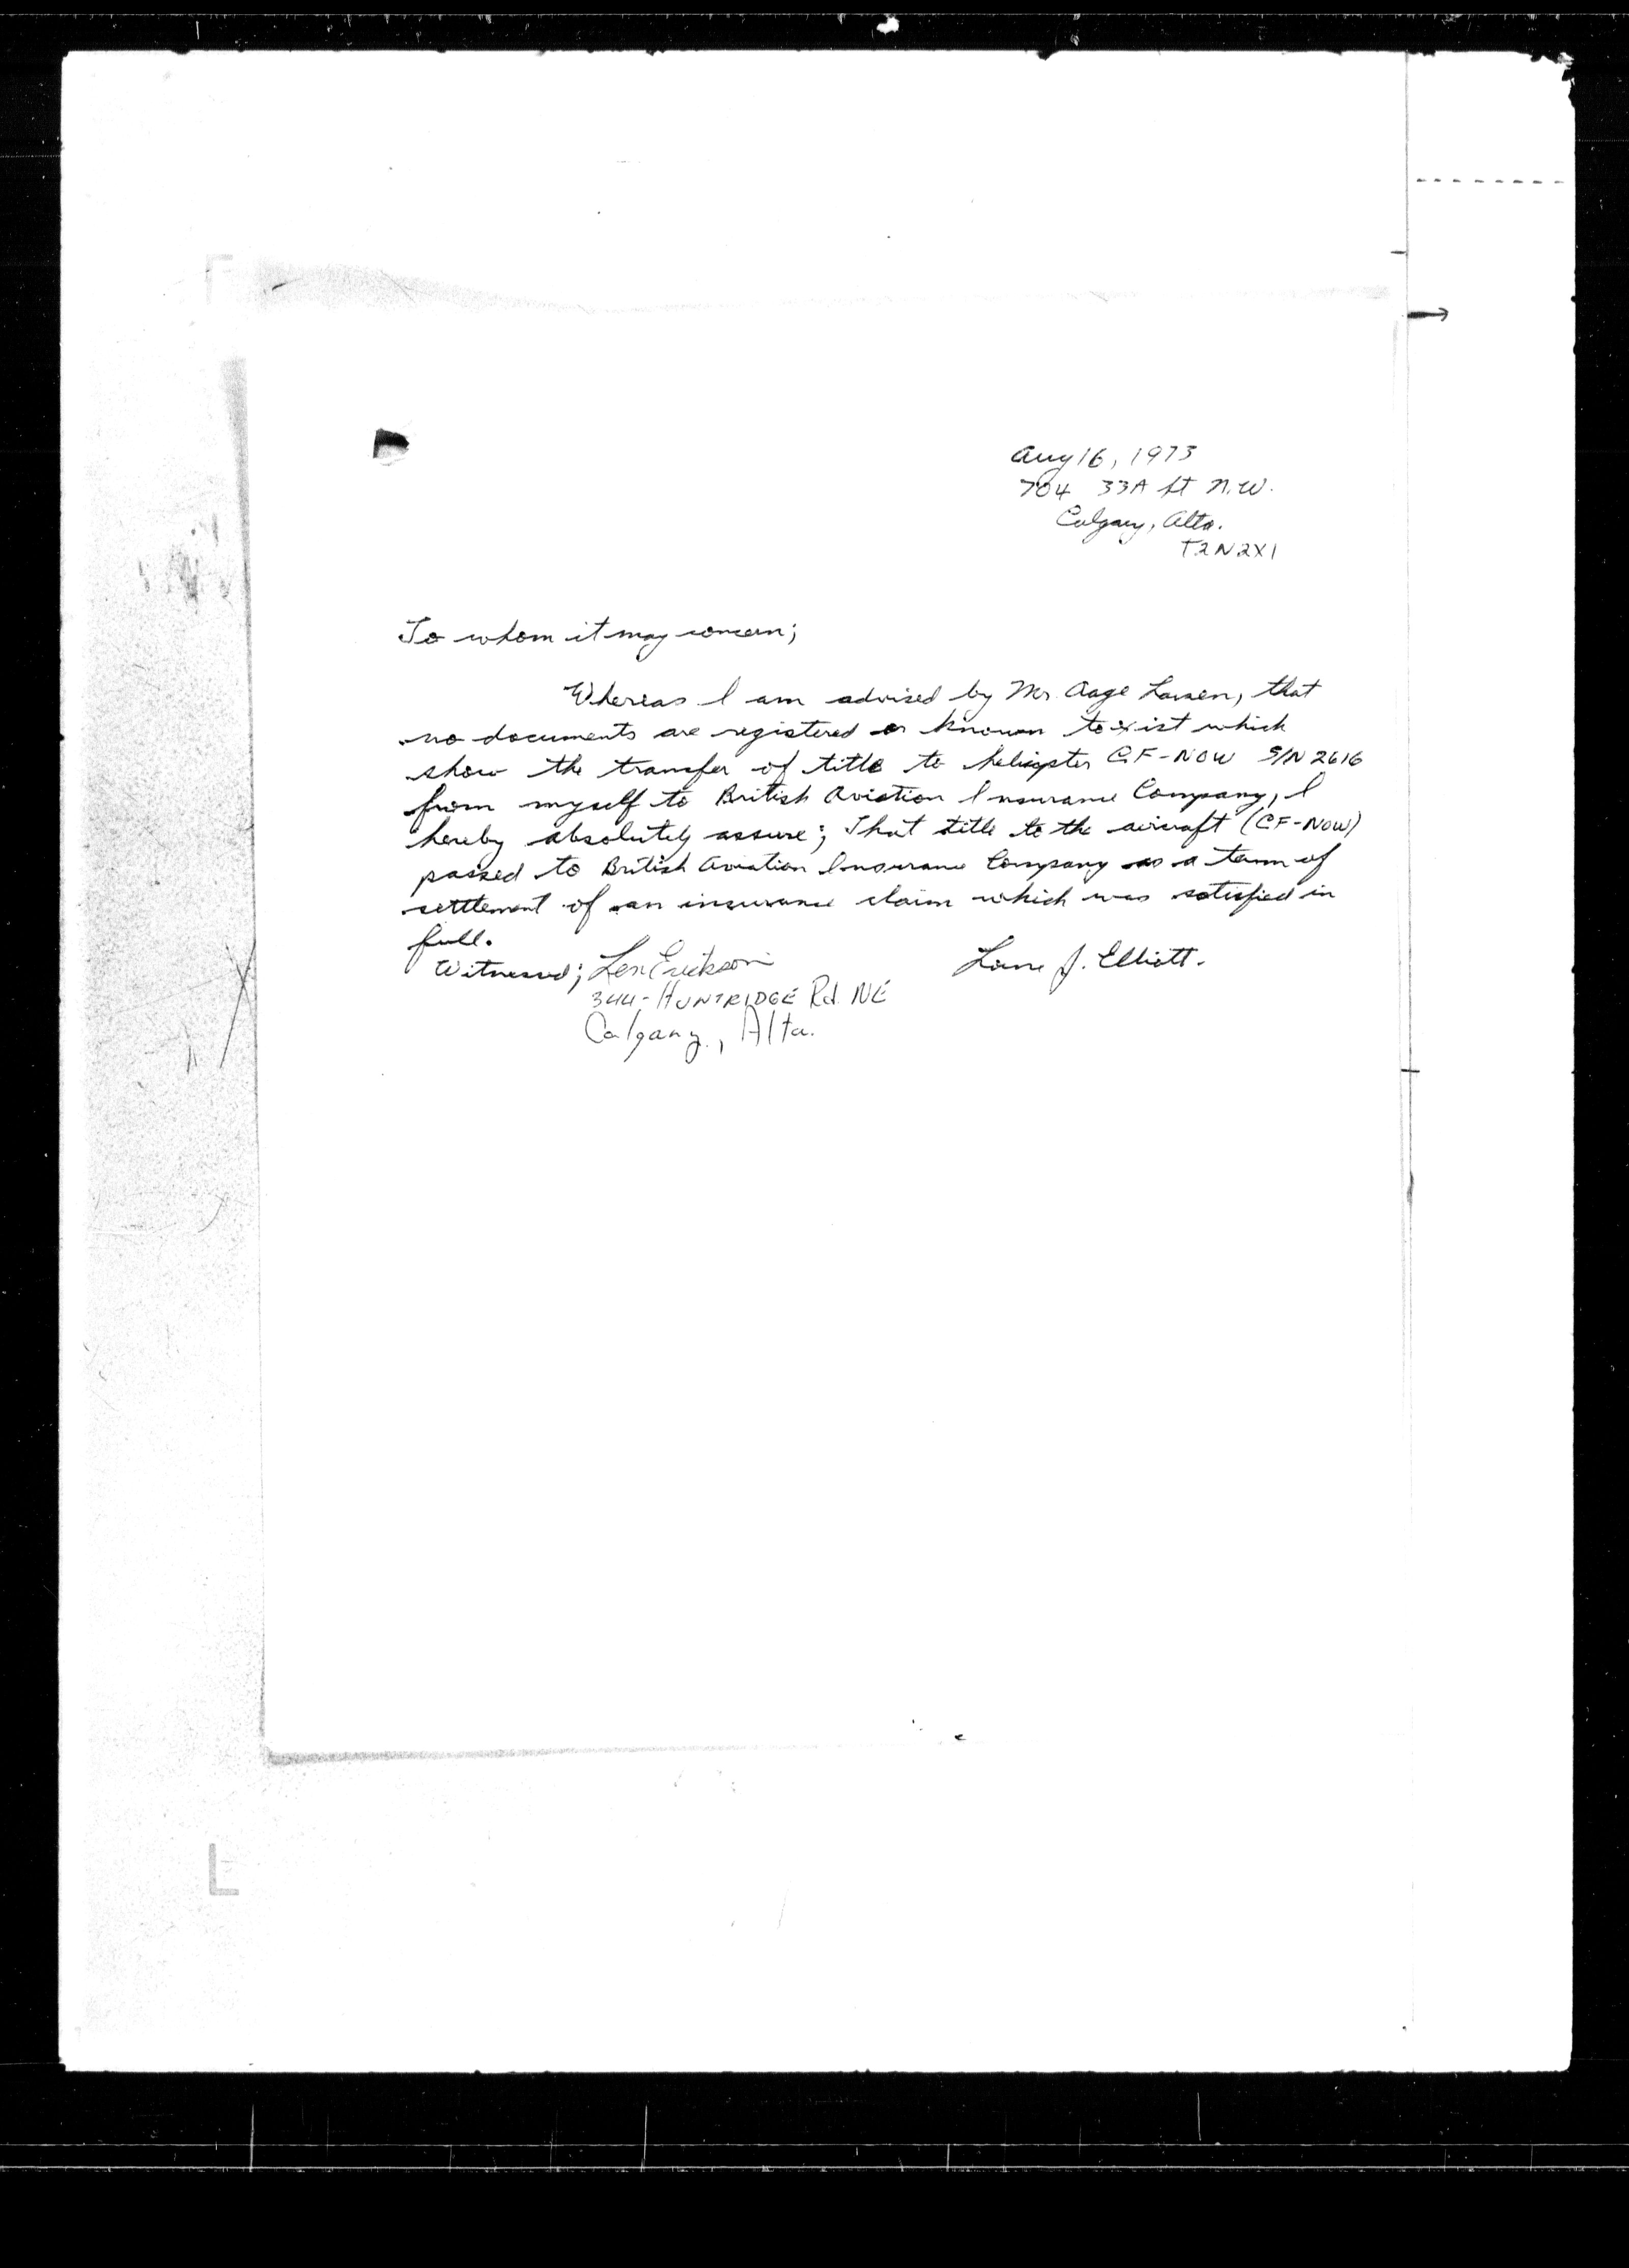 Aug 16, 1973
704 33A St N.W.
Calgary, Alta.
T2N2X1
To whom it may concern;
Whereas I am advised by Mr. Aage Larsen, that
no documents are registered or known to exist which
show the transfer of title to helicopter CF-NOW S/N 2616
from myself to British Aviation Insurance Company, I
hereby absolutely assure; That title to the aircraft (CF-NOW)
passed to British Aviation Insurance Company as a term of
settlement of an insurance claim which was satisfied in
full.
Witnessed; Len Erickson
Lorne J. Elliott.
344-HUNTRIDGE Rd. NE
Calgary, Alta.
L